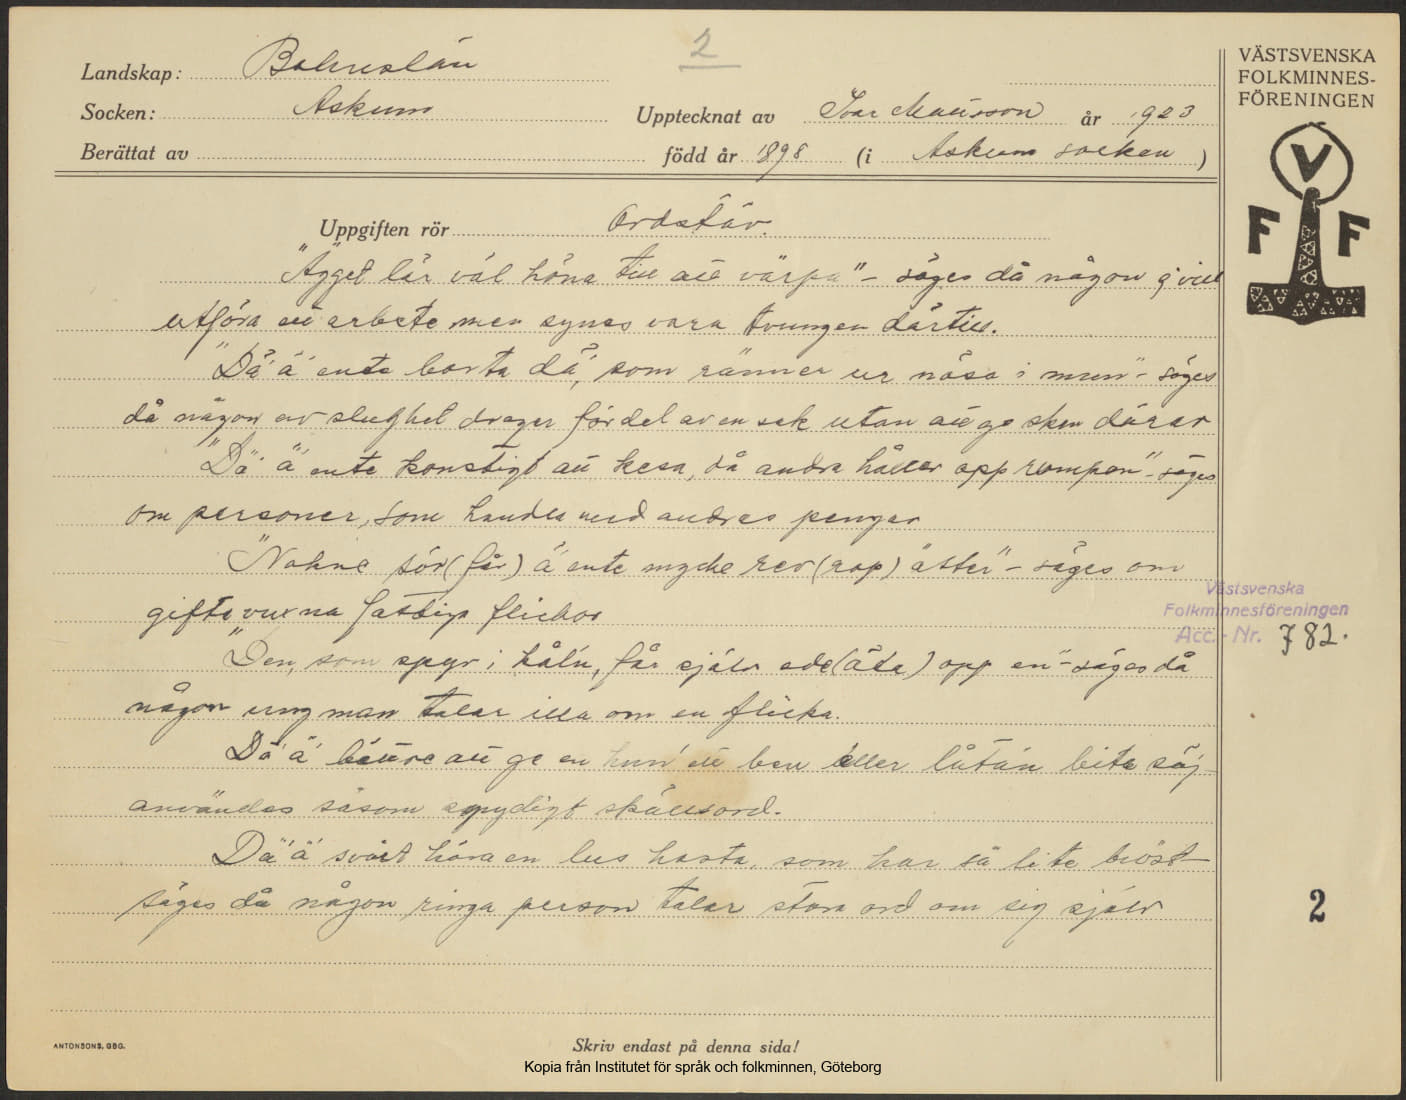 2
VÄSTSVENSKA
FOLKMINNES-
FÖRENINGEN
V
F F
Landskap: Bohuslän
Socken: Askum
Upptecknat av Ivar Mausson år 1923
Berättat av
född år 1898 (i Askum socken)
Uppgiften rör Ordstäv.
"Ägget lär väl höna till att värpa" - säges då någon ej vill
utföra ett arbete men synes vara tvungen därtill.
"Dä' ä' ente borta dä', som ränner ur nåsa i mun" - säges
då någon av slughet drager fördel av en sak utan att ge sken därav
"Dä' ä' ente konstigt att kesa, då andra håller opp rumpan" - säges
om personer, som handla med andras pengar
"Nakne sör (får) ä' ente myche rev (rop) ätter" - säges om
giftsvuxna fattiga flickor
"Den, som spyr i kål'n, får själv ede (äta) opp en" - säges då
någon ung man talar illa om en flicka.
Dä' ä' bättre att ge en hun' ett ben eller låt'än bita säj -
användes såsom spydigt skällsord.
Dä' ä' svårt höra en lus hosta, som har så lite bröst -
säges då någon ringa person talar stora ord om sig själv
Västsvenska
Folkminnesföreningen
Acc. - Nr. 782.
2
ANTONSONS, GBG.
Skriv endast på denna sida!
Kopia från Institutet för språk och folkminnen, Göteborg